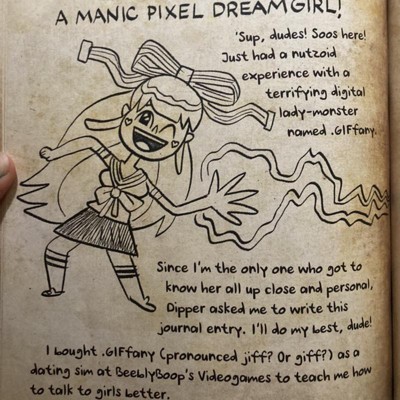 A MANIC PIXEL DREAMGIRL!
'Sup, dudes! Soos here!
Just had a nutzoid
experience with a
terrifying digital
lady-monster
named .GIFfany.
Since I'm the only one who got to
know her all up close and personal,
Dipper asked me to write this
journal entry. I'll do my best, dude!
I bought .GIFfany (pronounced jiff? Or giff?) as a
dating sim at BeeblyBoop's Videogames to teach me how
to talk to girls better.